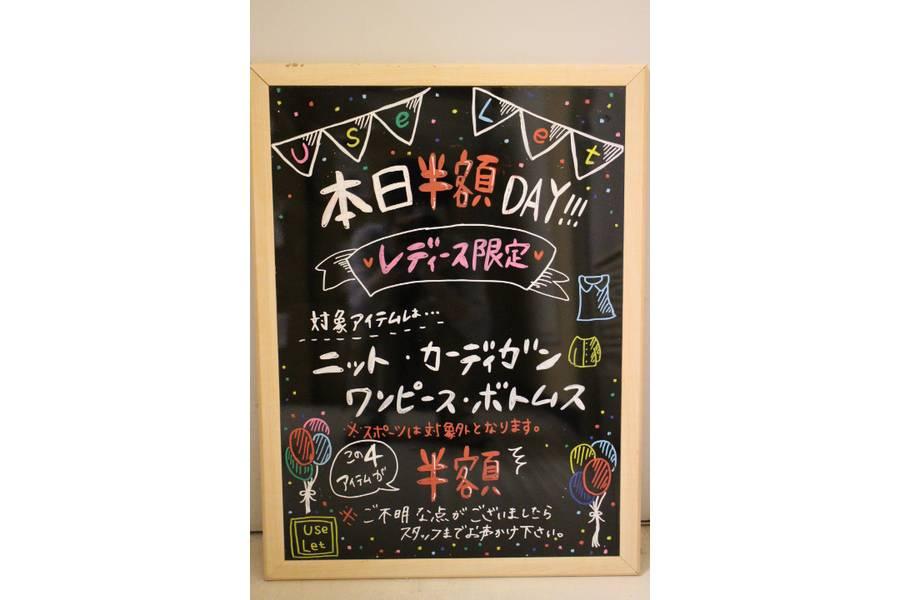 Use Let
本日半額DAY!!!
レディース限定
対象アイテムは…
ニット・カーディガン
ワンピース・ボトムス
※スポーツは対象外となります。
この4
アイテムが
半額
※ご不明な点がございましたら
スタッフまでお声かけ下さい。
Use
Let